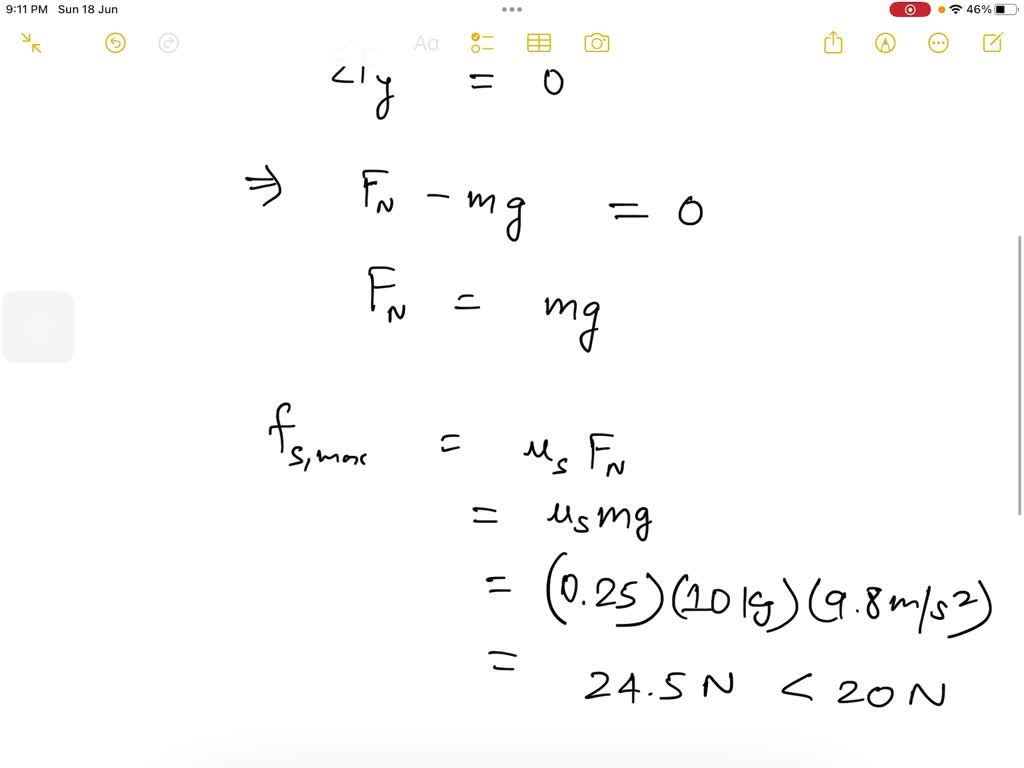 9:11 PM Sun 18 Jun 46%
Aa
y = 0
⇒ F_N - mg = 0
F_N = mg
f_s,max = μ_s F_N
= μ_s mg
= (0.25)(10 kg)(9.8 m/s²)
= 24.5 N < 20 N